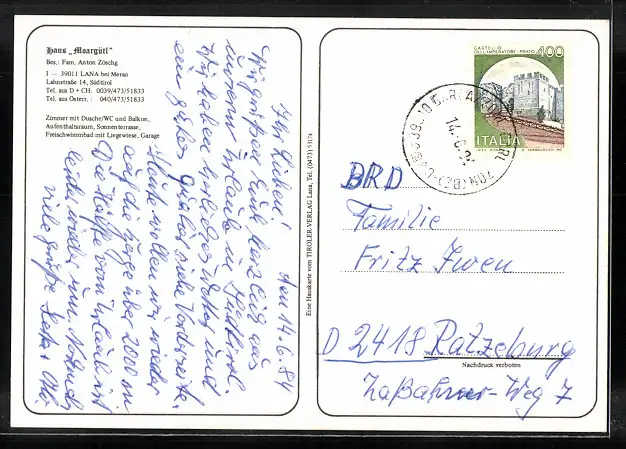 Haus „Moargütl"
Bes.: Fam. Anton Zöschg
I – 39011 LANA bei Meran
Lahnstraße 14, Südtirol
Tel. aus D + CH: 0039/473/51833
Tel. aus Österr. : 040/473/51833
Zimmer mit Dusche/WC und Balkon,
Aufenthaltsraum, Sonnenterrasse,
Freischwimmbad mit Liegewiese, Garage
Am 14.6.84
Ihr Lieben!
Wir grüßen Euch herzlich aus
unserem Urlaub in Südtirol.
Wir haben herrliches Wetter und
ein gutes Quartier siehe Vorderseite.
Heute wollen wir wieder
auf die Berge über 2000 m
Die Hälfte vom Urlaub ist
leider wieder um.
viele Grüße
Eine Hauskarte vom TIROLER-VERLAG Lana, Tel. (0473) 51174
CASTELLO
DELL'IMPERATORE - PRATO
400
ITALIA
BRD
Familie
Fritz
D 2418 Ratzeburg
Nachdruck verboten
Weg 7